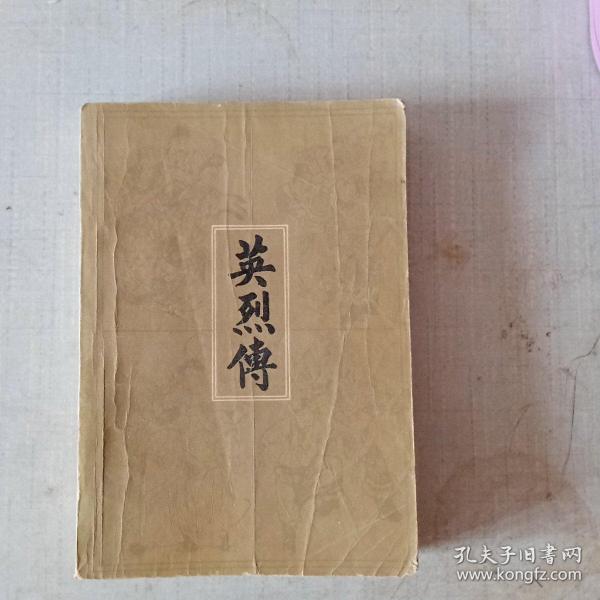 英烈傳
孔夫子旧書网
www.kongfz.com